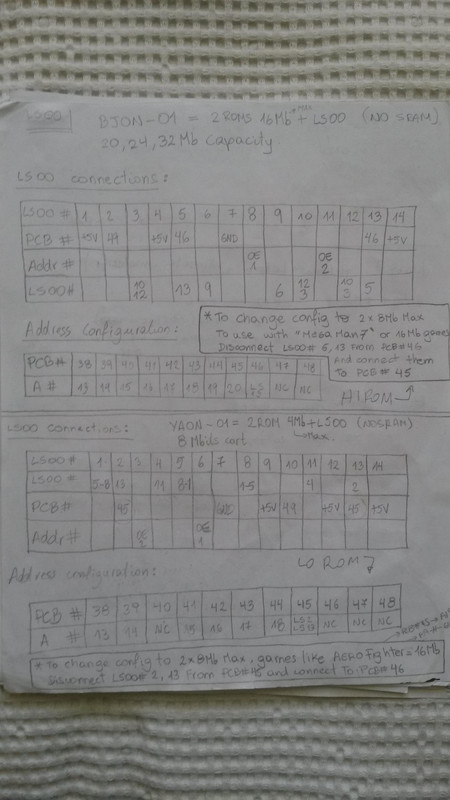 LS00 BJON-01 = 2 ROMS 16Mb + LS00 (NO SRAM)
MAX
20,24,32Mb Capacity.
LS00 connections:
LS00# 1 2 3 4 5 6 7 8 9 10 11 12 13 14
PCB # +5V 47 +5V 46 GND 46 +5V
Addr # OE 1 OE 2
LS00# 10 12 13 9 6 12 3 10 3 5
* To change config to 2x8Mb Max
To use with "MEGA Man 7" or 16Mb games
Disconnect LS00# 5,13 From PCB#46
And connect them
To PCB# 45
Address Configuration:
PCB# 38 39 40 41 42 43 44 45 46 47 48
A # 13 14 15 16 17 18 19 20 NC NC
HIROM
LS00 connections: YAON-01 = 2ROM 4Mb + LS00 (NOSRAM)
Max.
8 Mbids cart
LS00# 1 2 3 4 5 6 7 8 9 10 11 12 13 14
LS00# 5-8 13 11 8-1 1-5 4 2
PCB# 45 GND +5V 49 +5V 45 +5V
Addr# OE 2 OE 1
LO ROM
Address configuration:
PCB # 38 39 40 41 42 43 44 45 46 47 48
A # 13 NC 15 16 17 18 NC NC NC
* To change config to 2x8Mb Max, games like AERO fighter = 16Mb
Disconnect LS00# 2, 13 From PCB#45 and connect To PCB# 46